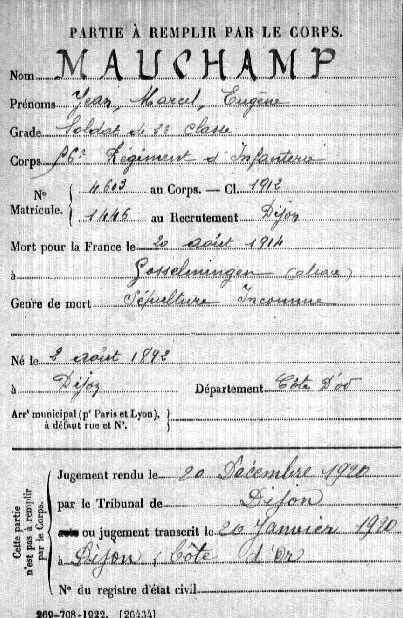 PARTIE À REMPLIR PAR LE CORPS.
Nom MAUCHAMP
Prénoms Jean, Marcel, Eugène
Grade Soldat de 2e classe
Corps 56e Régiment d'Infanterie
N° Matricule. { 4603 au Corps. — Cl. 1912
1446 au Recrutement Dijon
Mort pour la France le 20 août 1914
à Gosselmingen (alsace)
Genre de mort Sépulture Inconnue
Né le 2 août 1892
à Dijon Département Côte D'or
Arrt municipal (pr Paris et Lyon), à défaut rue et N°.
Cette partie n'est pas à remplir par le Corps.
Jugement rendu le 20 Décembre 1920
par le Tribunal de Dijon
ou jugement transcrit le 20 Janvier 1920
à Dijon, Côte d'Or
N° du registre d'état civil
269-708-1922. [20434]